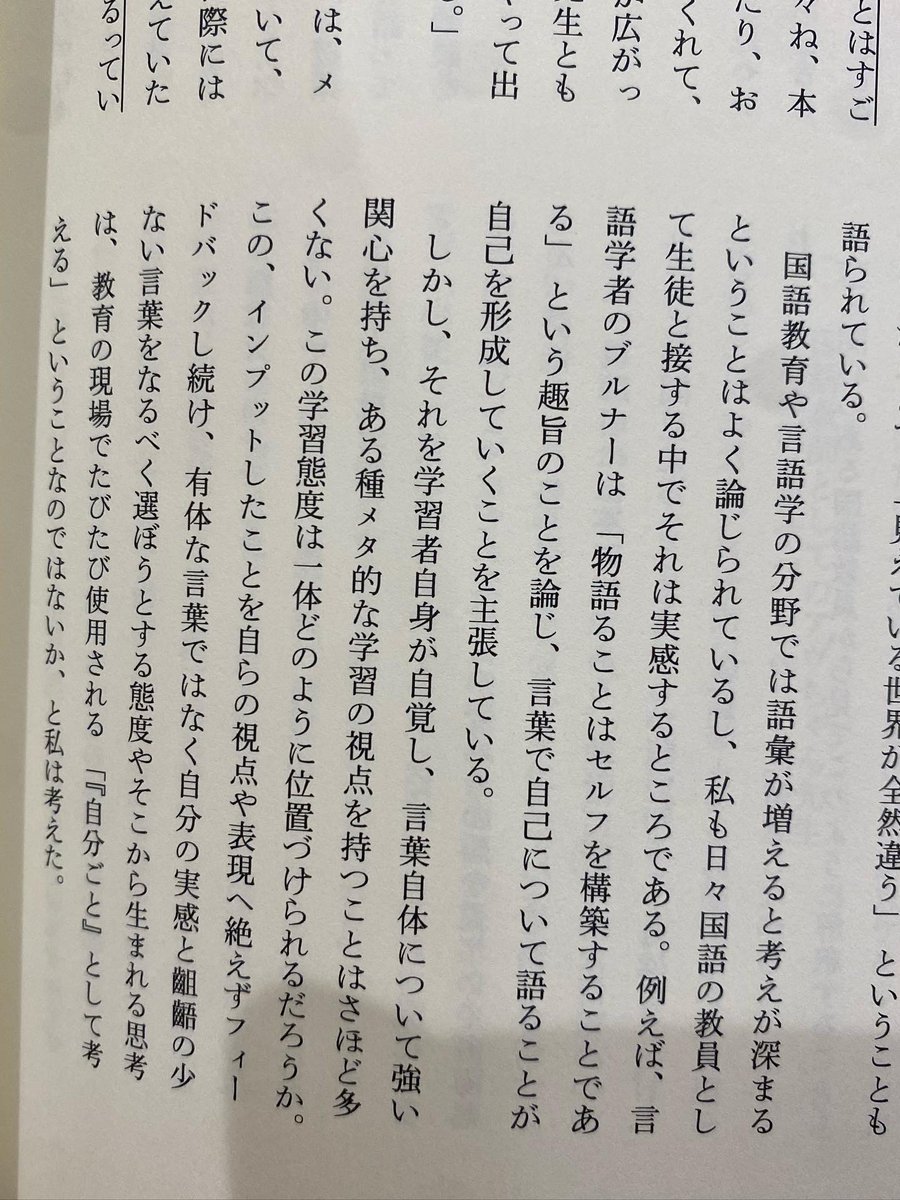 とはすご
々ね、本
たり、お
くれて、
が広がっ
生とも
って出
。」
は、メ
いて、
際には
えていた
るってい
見えている世界が全然違う」ということも
語られている。
国語教育や言語学の分野では語彙が増えると考えが深まる
ということはよく論じられているし、私も日々国語の教員とし
て生徒と接する中でそれは実感するところである。例えば、言
語学者のブルナーは「物語ることはセルフを構築することであ
る」という趣旨のことを論じ、言葉で自己について語ることが
自己を形成していくことを主張している。
しかし、それを学習者自身が自覚し、言葉自体について強い
関心を持ち、ある種メタ的な学習の視点を持つことはさほど多
くない。この学習態度は一体どのように位置づけられるだろうか。
この、インプットしたことを自らの視点や表現へ絶えずフィー
ドバックし続け、有体な言葉ではなく自分の実感と齟齬の少
ない言葉をなるべく選ぼうとする態度やそこから生まれる思考
は、教育の現場でたびたび使用される「『自分ごと』として考
える」ということなのではないか、と私は考えた。